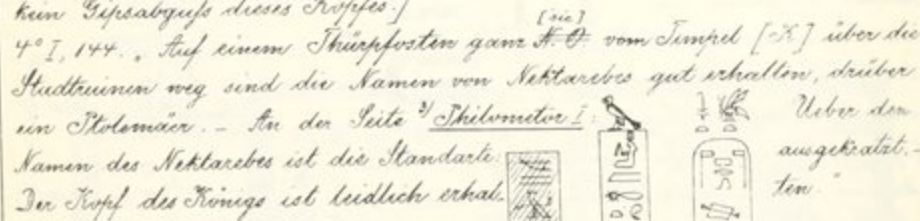 kein Gipsabguſs dieses Kopfes.]
[sic]
4° I, 144. „Auf einem Thürpfosten ganz N. O. vom Tempel [-K] über die
Stadtruinen weg sind die Namen von Nektarebes gut erhalten, drüber
ein Ptolemäer. – An der Seite 2) Philometor I: Ueber den
Namen des Nektarebes ist die Standarte: ausgekratzt. –
Der Kopf des Königs ist leidlich erhal- ten."